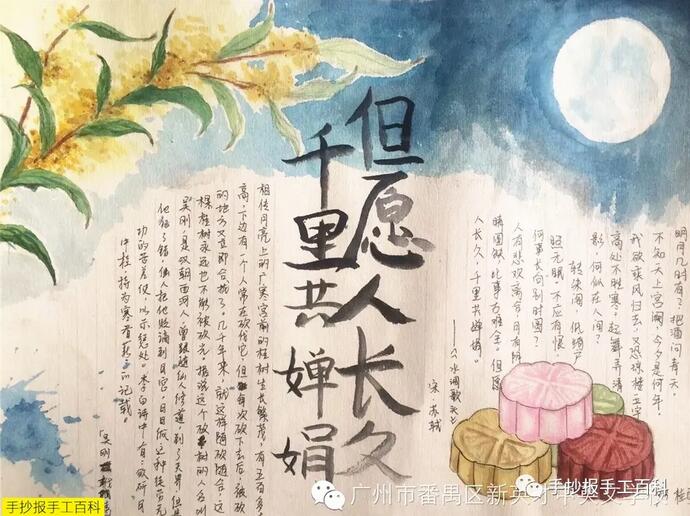 但愿人长久
千里共婵娟
明月几时有？把酒问青天。
不知天上宫阙，今夕是何年？
我欲乘风归去，又恐琼楼玉宇，
高处不胜寒。起舞弄清
影，何似在人间？
转朱阁，低绮户，
照无眠。不应有恨，
何事长向别时圆？
人有悲欢离合，月有阴
晴圆缺，此事古难全。但愿
人长久，千里共婵娟。
——《水调歌头》
宋 苏轼
相传月亮上的广寒宫前的桂树生长繁茂，有五百多
高，下边有一个人常在砍伐它，但每次砍下去后，被砍
的地方又立即合拢了。几千年来，就这样随砍随合，这
棵桂树永远也不能被砍光。据说这个砍树的人名叫
吴刚，是汉朝西河人，曾跟随仙人修道，到了天界，但是
他犯了错，仙人把他贬谪到月宫，日日做这种徒劳无
功的苦差使，以示惩处。李白诗中有"欲斫月
中桂，持为寒者薪"的记载。
手抄报手工百科
广州市番禺区新英才中英文学校
手抄报手工百科